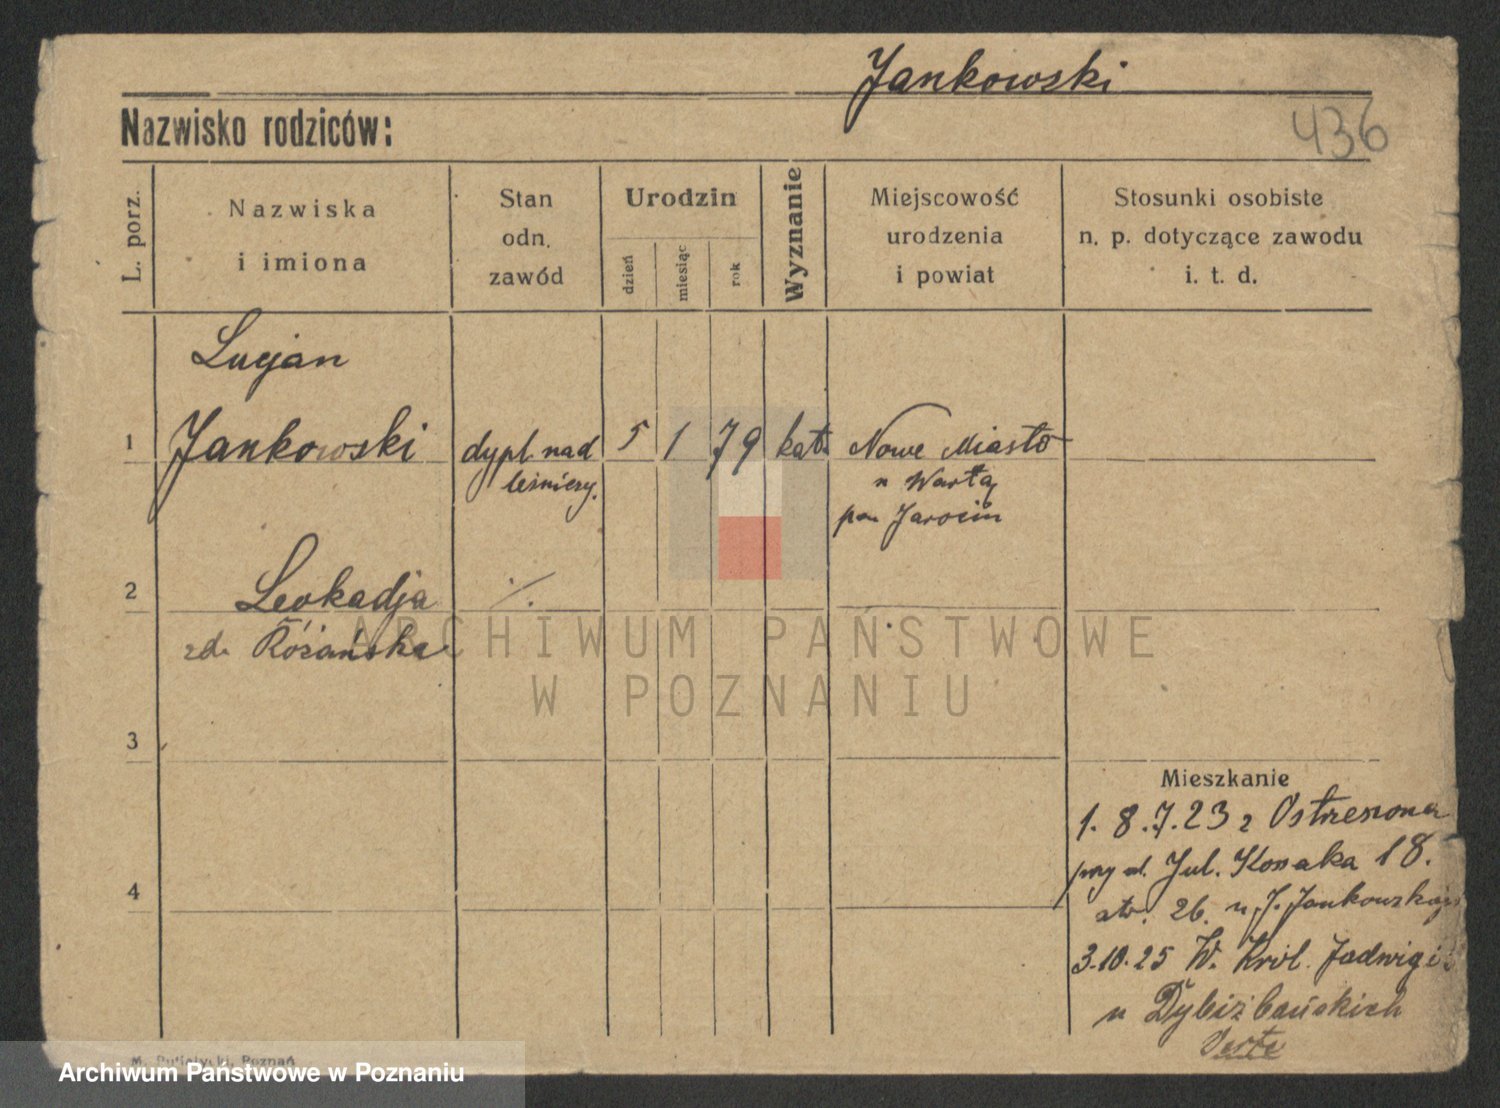 Jankowski
Nazwisko rodziców:
436
L. porz.
Nazwiska
i imiona
Stan
odn.
zawód
Urodzin
dzień
miesiąc
rok
Wyznanie
Miejscowość
urodzenia
i powiat
Stosunki osobiste
n. p. dotyczące zawodu
i. t. d.
Lucjan
1 Jankowski dypl. nad 5 1 79 kat. Nowe Miasto
leśniczy. n Wartą
pow Jarocin
2 Leokadja ./.
zd. Różańska
ARCHIWUM PAŃSTWOWE
W POZNANIU
3
Mieszkanie
1. 8.7.23 z
Jul. Kossaka 18.
4
26. u J. Jankowskiej
3.10.25 W. Król. Jadwigi
u
Verte
Poznań
Archiwum Państwowe w Poznaniu